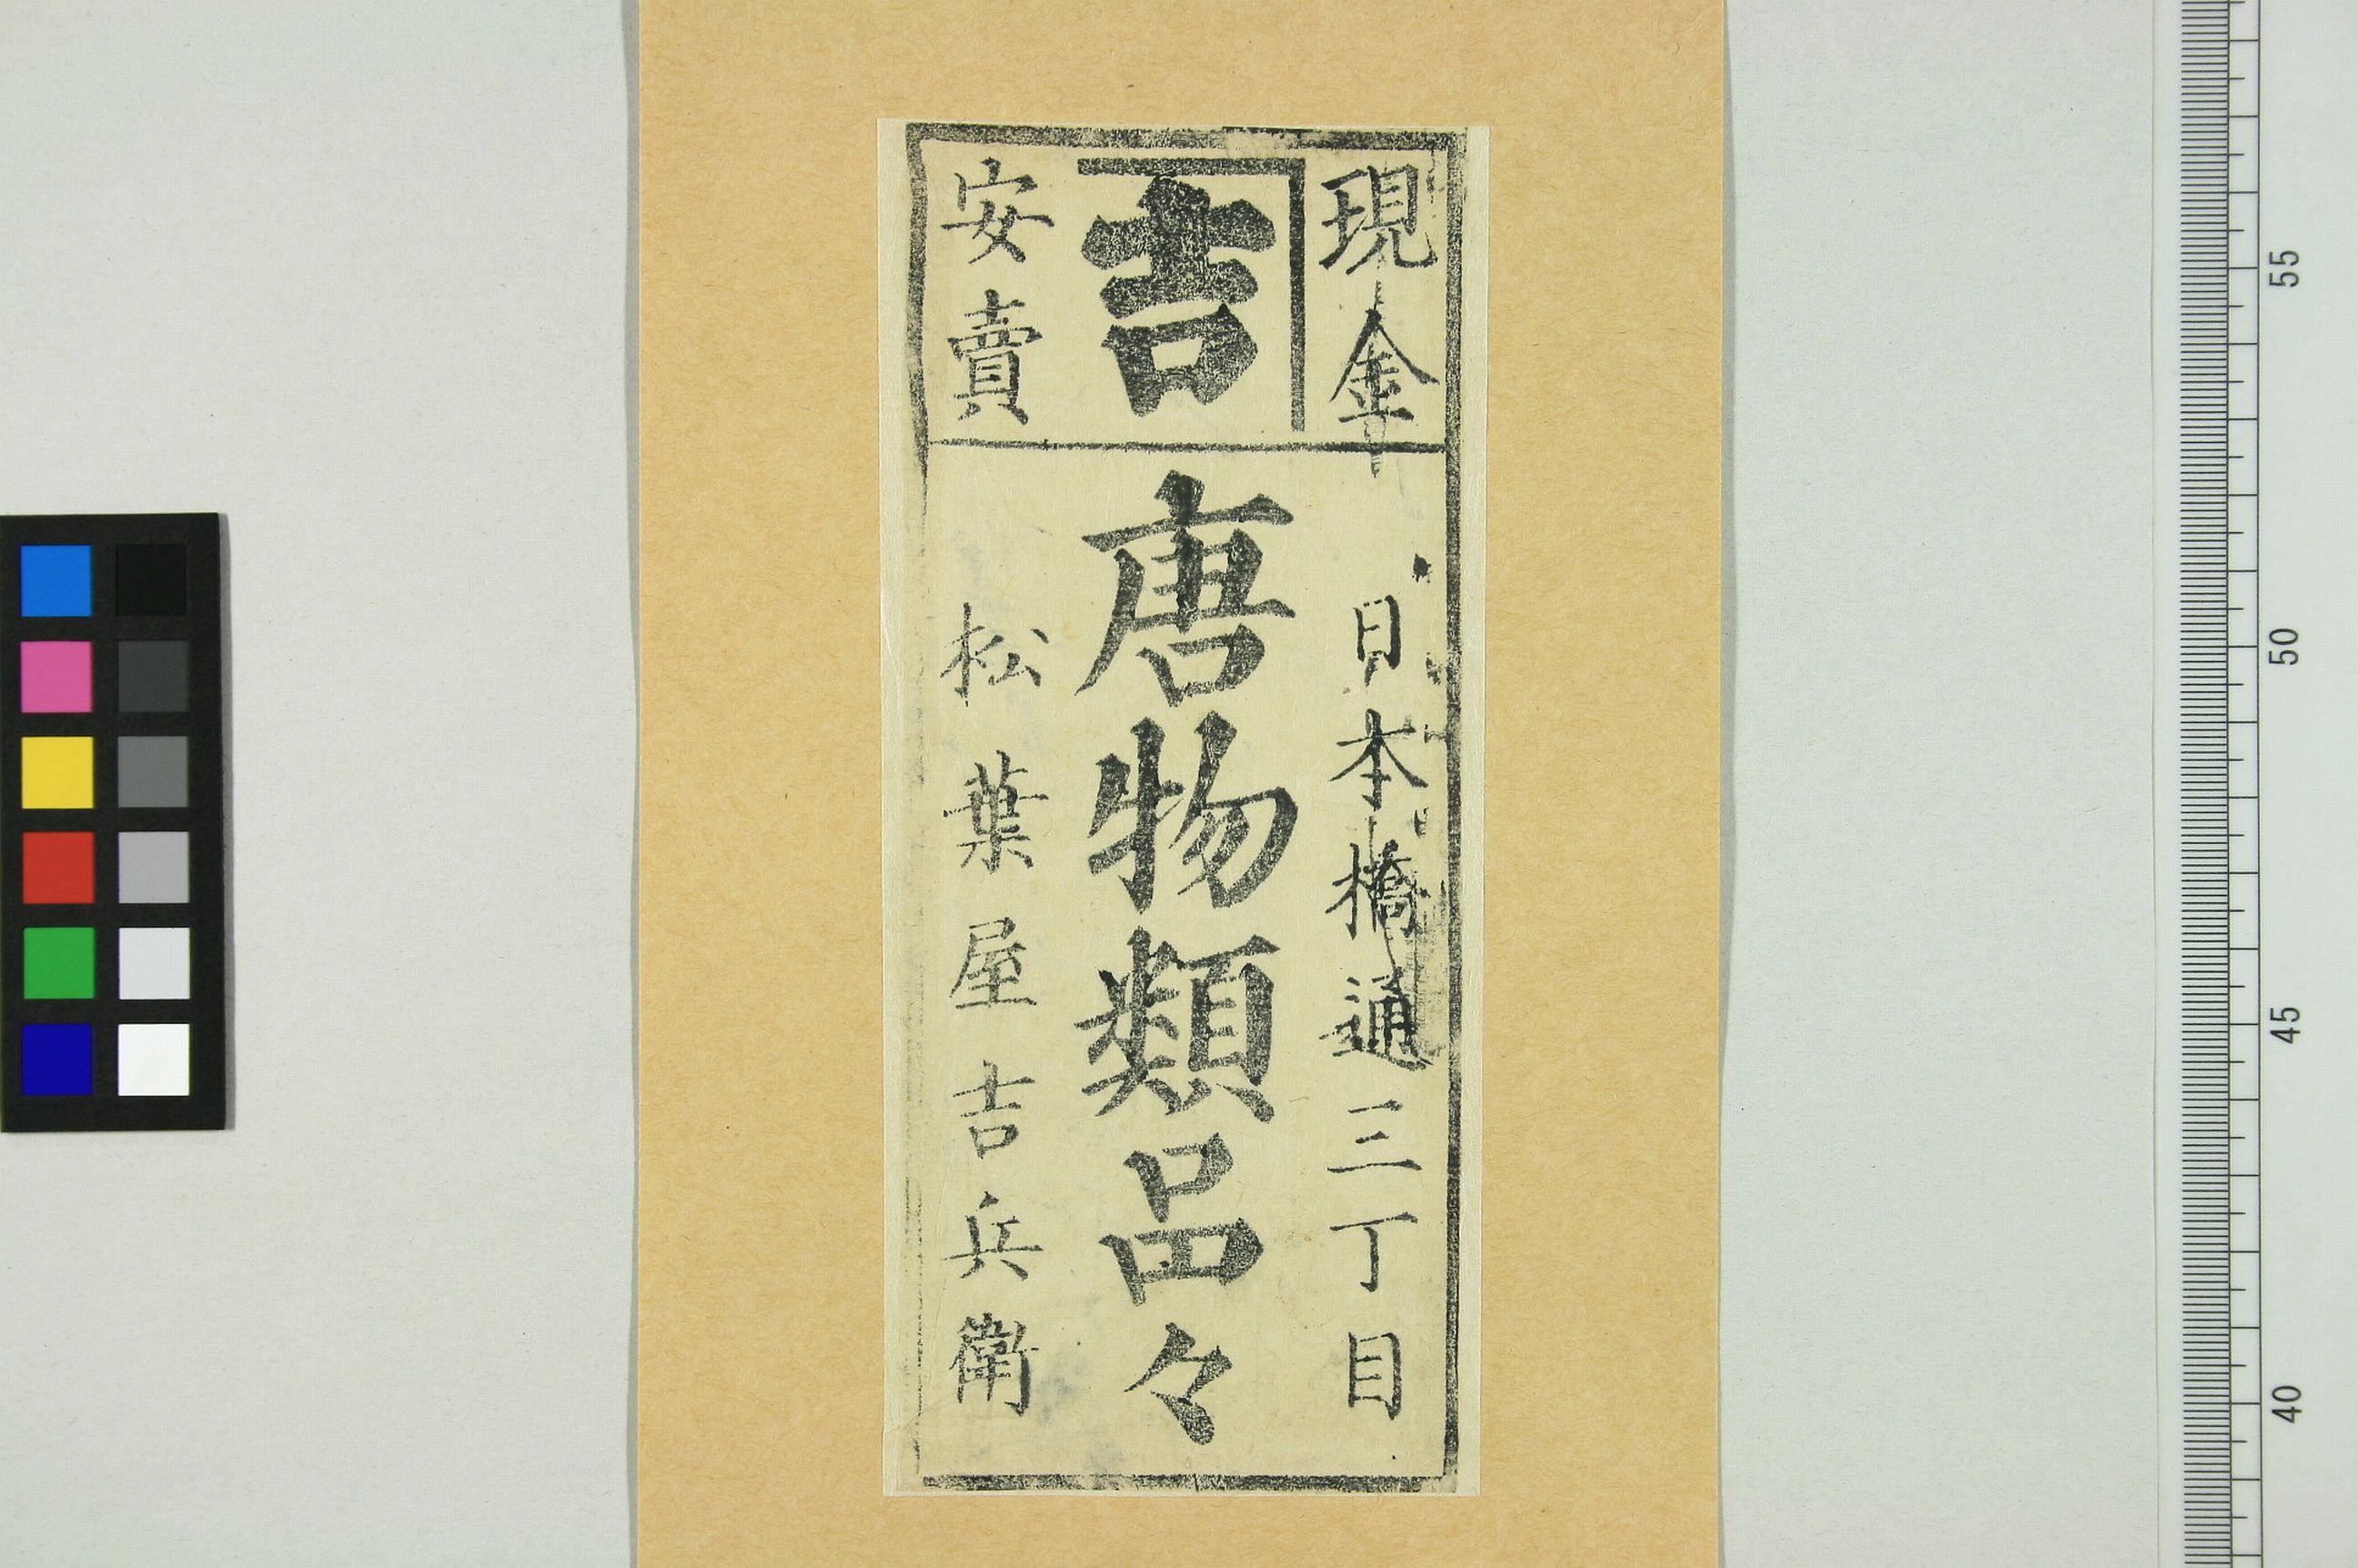 現金
吉
安賣
日本橋通三丁目
唐物類品々
松葉屋吉兵衛
55
50
45
40